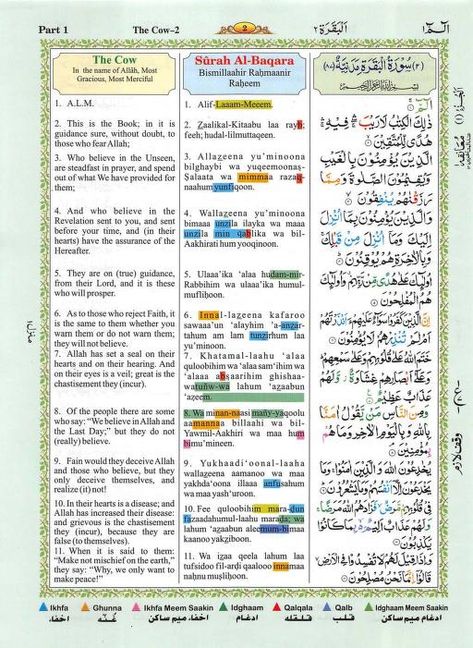 Part 1
The Cow–2
2
اَلْبَقَرَة ٢
الٓمّٓ ١
The Cow
In the name of Allâh, Most
Gracious, Most Merciful
1. A.L.M.
2. This is the Book; in it is
guidance sure, without doubt, to
those who fear Allah;
3. Who believe in the Unseen,
are steadfast in prayer, and spend
out of what We have provided for
them;
4. And who believe in the
Revelation sent to you, and sent
before your time, and (in their
hearts) have the assurance of the
Hereafter.
5. They are on (true) guidance,
from their Lord, and it is these
who will prosper.
6. As to those who reject Faith, it
is the same to them whether you
warn them or do not warn them;
they will not believe.
7. Allah has set a seal on their
hearts and on their hearing. And
on their eyes is a veil; great is the
chastisement they (incur).
8. Of the people there are some
who say: "We believe in Allah and
the Last Day;" but they do not
(really) believe.
9. Fain would they deceive Allah
and those who believe, but they
only deceive themselves, and
realize (it) not!
10. In their hearts is a disease; and
Allah has increased their disease:
and grievous is the chastisement
they (incur), because they are
false (to themselves).
11. When it is said to them:
"Make not mischief on the earth,"
they say: "Why, we only want to
make peace!"
Sûrah Al-Baqara
Bismillaahir Raḥmaanir
Raheem
1. Alif-Laaam-Meeem.
2. Zaalikal-Kitaabu laa rayb;
feeh; hudal-lilmuttaqeen.
3. Allazeena yu'minoona
bilghaybi wa yuqeemoonaṣ-
Ṣalaata wa mimmaa razaq-
naahum yunfiqoon.
4. Wallazeena yu'minoona
bimaaa unzila ilayka wa maaa
unzila min qablika wa bil-
Aakhirati hum yooqinoon.
5. Ulaaa'ika 'alaa hudam-mir-
Rabbihim wa ulaaa'ika humul-
mufliḥoon.
6. Innal-lazeena kafaroo
sawaaa'un 'alayhim 'a-anzar-
tahum am lam tunzirhum laa
yu'minoon.
7. Khatamal-laahu 'alaa
quloobihim wa 'alaa sam'ihim wa
'alaaa abṣaarihim ghishaa-
watuñw-wa lahum 'azaabun
'azeem.
8. Wa minan-naasi mañy-yaqoolu
aamannaa billaahi wa bil-
Yawmil-Aakhiri wa maa hum
bimu'mineen.
9. Yukhaadi'oonal-laaha
wallazeena aamanoo wa maa
yakhda'oona illaaa anfusahum
wa maa yash'uroon.
10. Fee quloobihim maraḍun
fazaadahumul-laahu maraḍaa; wa
lahum 'azaabun aleemum-bimaa
kaanoo yakziboon.
11. Wa izaa qeela lahum laa
tufsidoo fil-arḍi qaalooo innamaa
naḥnu muṣliḥoon.
(٢) سُوْرَةُ الْبَقَرَةِ مَدَنِيَّةٌ (٨٧)
بِسْمِ اللهِ الرَّحْمٰنِ الرَّحِيْمِ
الٓمّٓ
ذٰلِكَ الْكِتٰبُ لَا رَيْبَ فِيْهِ
هُدًى لِّلْمُتَّقِيْنَ
الَّذِيْنَ يُؤْمِنُوْنَ بِالْغَيْبِ
وَيُقِيْمُوْنَ الصَّلٰوةَ وَمِمَّا
رَزَقْنٰهُمْ يُنْفِقُوْنَ
وَالَّذِيْنَ يُؤْمِنُوْنَ بِمَآ اُنْزِلَ
اِلَيْكَ وَمَآ اُنْزِلَ مِنْ قَبْلِكَ
وَبِالْاٰخِرَةِ هُمْ يُوْقِنُوْنَ
اُولٰٓئِكَ عَلٰى هُدًى مِّنْ رَّبِّهِمْ وَاُولٰٓئِكَ
هُمُ الْمُفْلِحُوْنَ
اِنَّ الَّذِيْنَ كَفَرُوْا سَوَآءٌ عَلَيْهِمْ ءَاَنْذَرْتَهُمْ
اَمْ لَمْ تُنْذِرْهُمْ لَا يُؤْمِنُوْنَ
خَتَمَ اللهُ عَلٰى قُلُوْبِهِمْ وَعَلٰى سَمْعِهِمْ
وَعَلٰٓى اَبْصَارِهِمْ غِشَاوَةٌ وَّلَهُمْ
عَذَابٌ عَظِيْمٌ
وَمِنَ النَّاسِ مَنْ يَّقُوْلُ اٰمَنَّا
بِاللهِ وَبِالْيَوْمِ الْاٰخِرِ وَمَا هُمْ
بِمُؤْمِنِيْنَ
يُخٰدِعُوْنَ اللهَ وَالَّذِيْنَ اٰمَنُوْا وَمَا
يَخْدَعُوْنَ اِلَّآ اَنْفُسَهُمْ وَمَا يَشْعُرُوْنَ
فِيْ قُلُوْبِهِمْ مَّرَضٌ فَزَادَهُمُ اللهُ مَرَضًا
وَلَهُمْ عَذَابٌ اَلِيْمٌ بِمَا كَانُوْا
يَكْذِبُوْنَ
وَاِذَا قِيْلَ لَهُمْ لَا تُفْسِدُوْا فِي الْاَرْضِ
قَالُوْٓا اِنَّمَا نَحْنُ مُصْلِحُوْنَ
Ikhfa
Ghunna
Ikhfa Meem Saakin
Idghaam
Qalqala
Qalb
Idghaam Meem Saakin
اخفاء
غُنَّه
اخفاء میم ساکن
ادغام
قلقله
قلب
ادغام میم ساکن